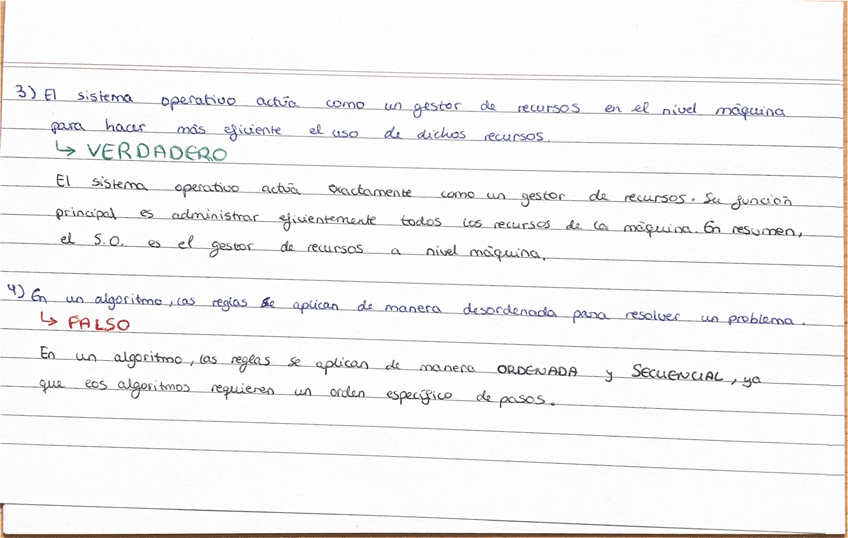 3) El sistema operativo actúa como un gestor de recursos en el nivel máquina
para hacer más eficiente el uso de dichos recursos.
↳ VERDADERO
El sistema operativo actúa exactamente como un gestor de recursos. Su función
principal es administrar eficientemente todos los recursos de la máquina. En resumen,
el S.O. es el gestor de recursos a nivel máquina.
4) En un algoritmo, las reglas se aplican de manera desordenada para resolver un problema.
↳ FALSO
En un algoritmo, las reglas se aplican de manera ORDENADA y SECUENCIAL, ya
que los algoritmos requieren un orden específico de pasos.